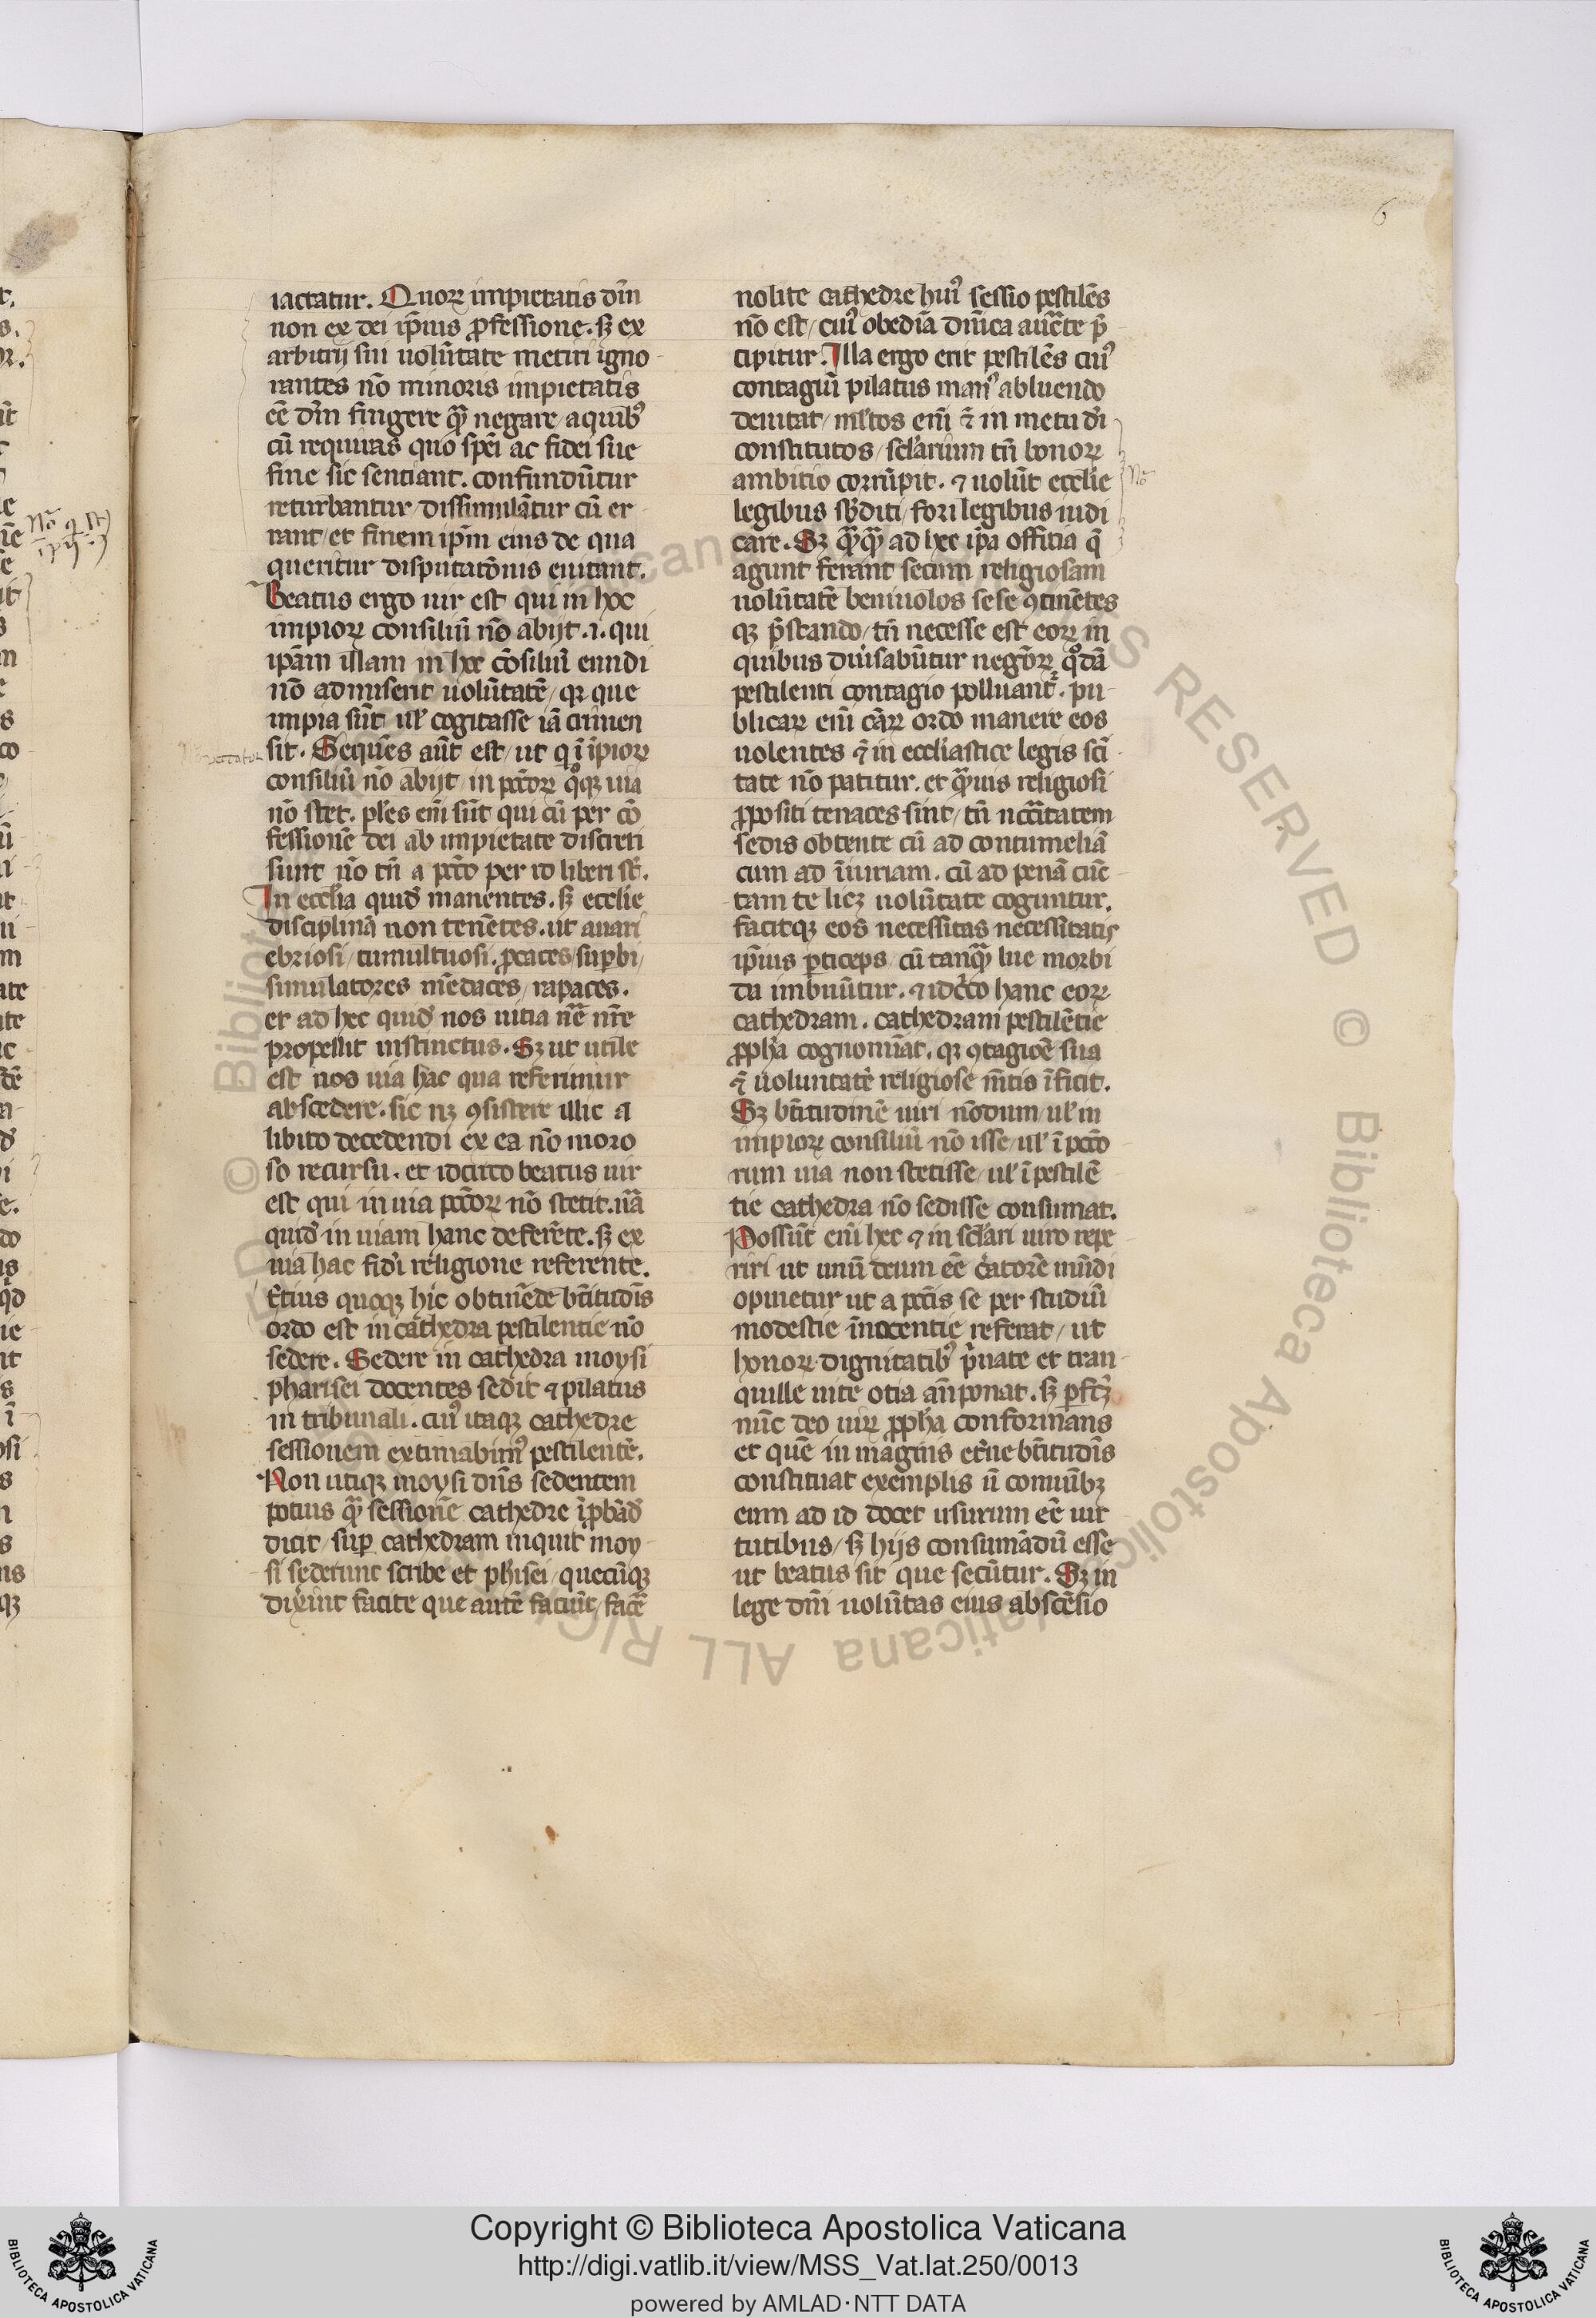 6
iactatur. Quoꝝ impietatis dm̄
non ex dei ip̄ius ꝓfessione. sꝫ ex
arbitrij sui uolūtate metiri igno
rantes nō minoris impietatis
eē dm̄ fingere qᷓ negare / a quibꝰ
cū requiras quo sp̄ei ac fidei sue
fine sic sentiant. confundūtur
returbantur / dissimulātur cū er
rant / et finem ip̄m eius de qua
queritur disputatōnis euitant.
Beatus ergo uir est qui in hoc
impioꝝ consiliū nō abijt .i. qui
ip̄am illam in hoc cōsiliū eundi
nō admiserit uolūtatē / qꝛ que
impia sūt ul̓ cogitasse iā crimen
sit. Sequēs aūt est / ut q ī īpioꝝ
consiliū nō abijt / in pctōꝝ qͦqꝫ uia
nō stet. pl̓es em̄ sūt qui cū per cō
fessionē dei ab impietate discreti
sunt nō tn̄ a pctō per id liberi st̄.
In eccl̓ia quid̓ manentes. sꝫ eccl̓ie
disciplinā non tenētes. ut auari
ebriosi / tumultuosi. ꝓcaces / suꝑbi /
simulatores mēdaces / rapaces.
et ad hec quid̓ nos uitia nē nr̄e
propellit instinctus. Sꝫ ut utile
est nos uia hac qua referimur
abscedere. sic nꝫ ꝯsistere illic a
libito decedendi ex ea nō moro
so recursu. et idcirco beatus uir
est qui in uia pctōꝝ nō stetit. nā
quid̓ in uiam hanc deferēte. sꝫ ex
uia hac fid̓i religione referente.
Et̄ius quoqꝫ hic obtinēde bt̄itudīs
ordo est in cathedra pestilentie nō
sedere. Sedere in cathedra moysi
pharisei docentes sedit ⁊ pilatus
in tribunali. cuiꝰ itaqꝫ cathedre
sessionem extimabimꝰ pestilentē.
Non utiqꝫ moysi dn̄s sedentem
potius qᷓ sessionē cathedre īꝓbād̓
dicit / suꝑ cathedram inquit moy
si sederunt scribe et ph̓isei / quecūqꝫ
dixerīt facite que autē faciūt / facē
nolite cathedre huiꝰ sessio pestilēs
nō est / cuiꝰ obediā dn̄ica auctē p̄
cipitur. Illa ergo erit pestilēs cuiꝰ
contagiū pilatus manꝰ abluendo
deuitat / ml̓tos em̄ ⁊̄ in metu d̓i
constitutos / sclarium tn̄ honoꝝ
ambitio corrūpit. ⁊ uolūt eccl̓ie
legibus sb̓diti / fori legibus iudi
care. Sꝫ qᷓqᷓ ad hec ip̄a officia q̄
agunt ferant secum religiosam
uolūtatē beniuolos sese ꝯtinētes
qꝫ p̄stando / tn̄ necesse est eoꝝ in
quibus diūsabūtur negōꝝ qͦdā
pestilenti contagio polluant᷑. pu
blicaꝝ em̄ cāꝝ ordo manere eos
uolentes ⁊̄ in eccl̓iastice legis scī
tate nō patitur. et qᷓuis religiosi
ꝓpositi tenaces sint / tn̄ nccītatem
sedis obtente cū ad contumeliā
cum ad īiuriam. cū ad penā cūc
tam te licꝫ uolūtate coguntur.
facitqꝫ eos necessitas necessitatis
ip̄ius ꝑticeps / cū tanqᷓ lue morbi
da imbuūtur. ⁊ idcͥco hanc eoꝝ
cathedram. cathedram pestilētie
ꝓph̓a cognomīat. qꝛ ꝯtagiōe sua
⁊̄ uoluntatē religiose m̄tis īficit.
Sꝫ bt̄itudinē uiri nōdum / ul̓ in
impioꝝ consiliū nō isse / ul̓ ī pctō
rum uia non stetisse / ul̓ ī pestilē
tie cathedra nō sedisse consumat.
Possūt em̄ hec ⁊ in sclari uiro repe
riri ut unū deum eē cͥatorē mūdi
opinetur ut a pctīs se per studiū
modestie īnocentie referat / ut
honoꝝ dignitatibꝰ pͥuate et tran
quille uite otia an̄ponat. sꝫ ꝑftꝫ
nūc deo uiꝝ ꝓph̓a conformans
et quē in magnis et̓ne bt̄itudīs
constituat exemplis ū comūibꝫ
eum ad id docet usurum eē uir
tutibus / sꝫ hijs consumādū esse
ut beatus sit que secūtur. Sꝫ in
lege dm̄i uolūtas eius abscēsio
Nō
Copyright © Biblioteca Apostolica Vaticana
http://digi.vatlib.it/view/MSS_Vat.lat.250/0013
powered by AMLAD·NTT DATA
BIBLIOTECA APOSTOLICA VATICANA
BIBLIOTECA APOSTOLICA VATICANA
© Biblioteca Apostolica Vaticana ALL RIGHTS RESERVED